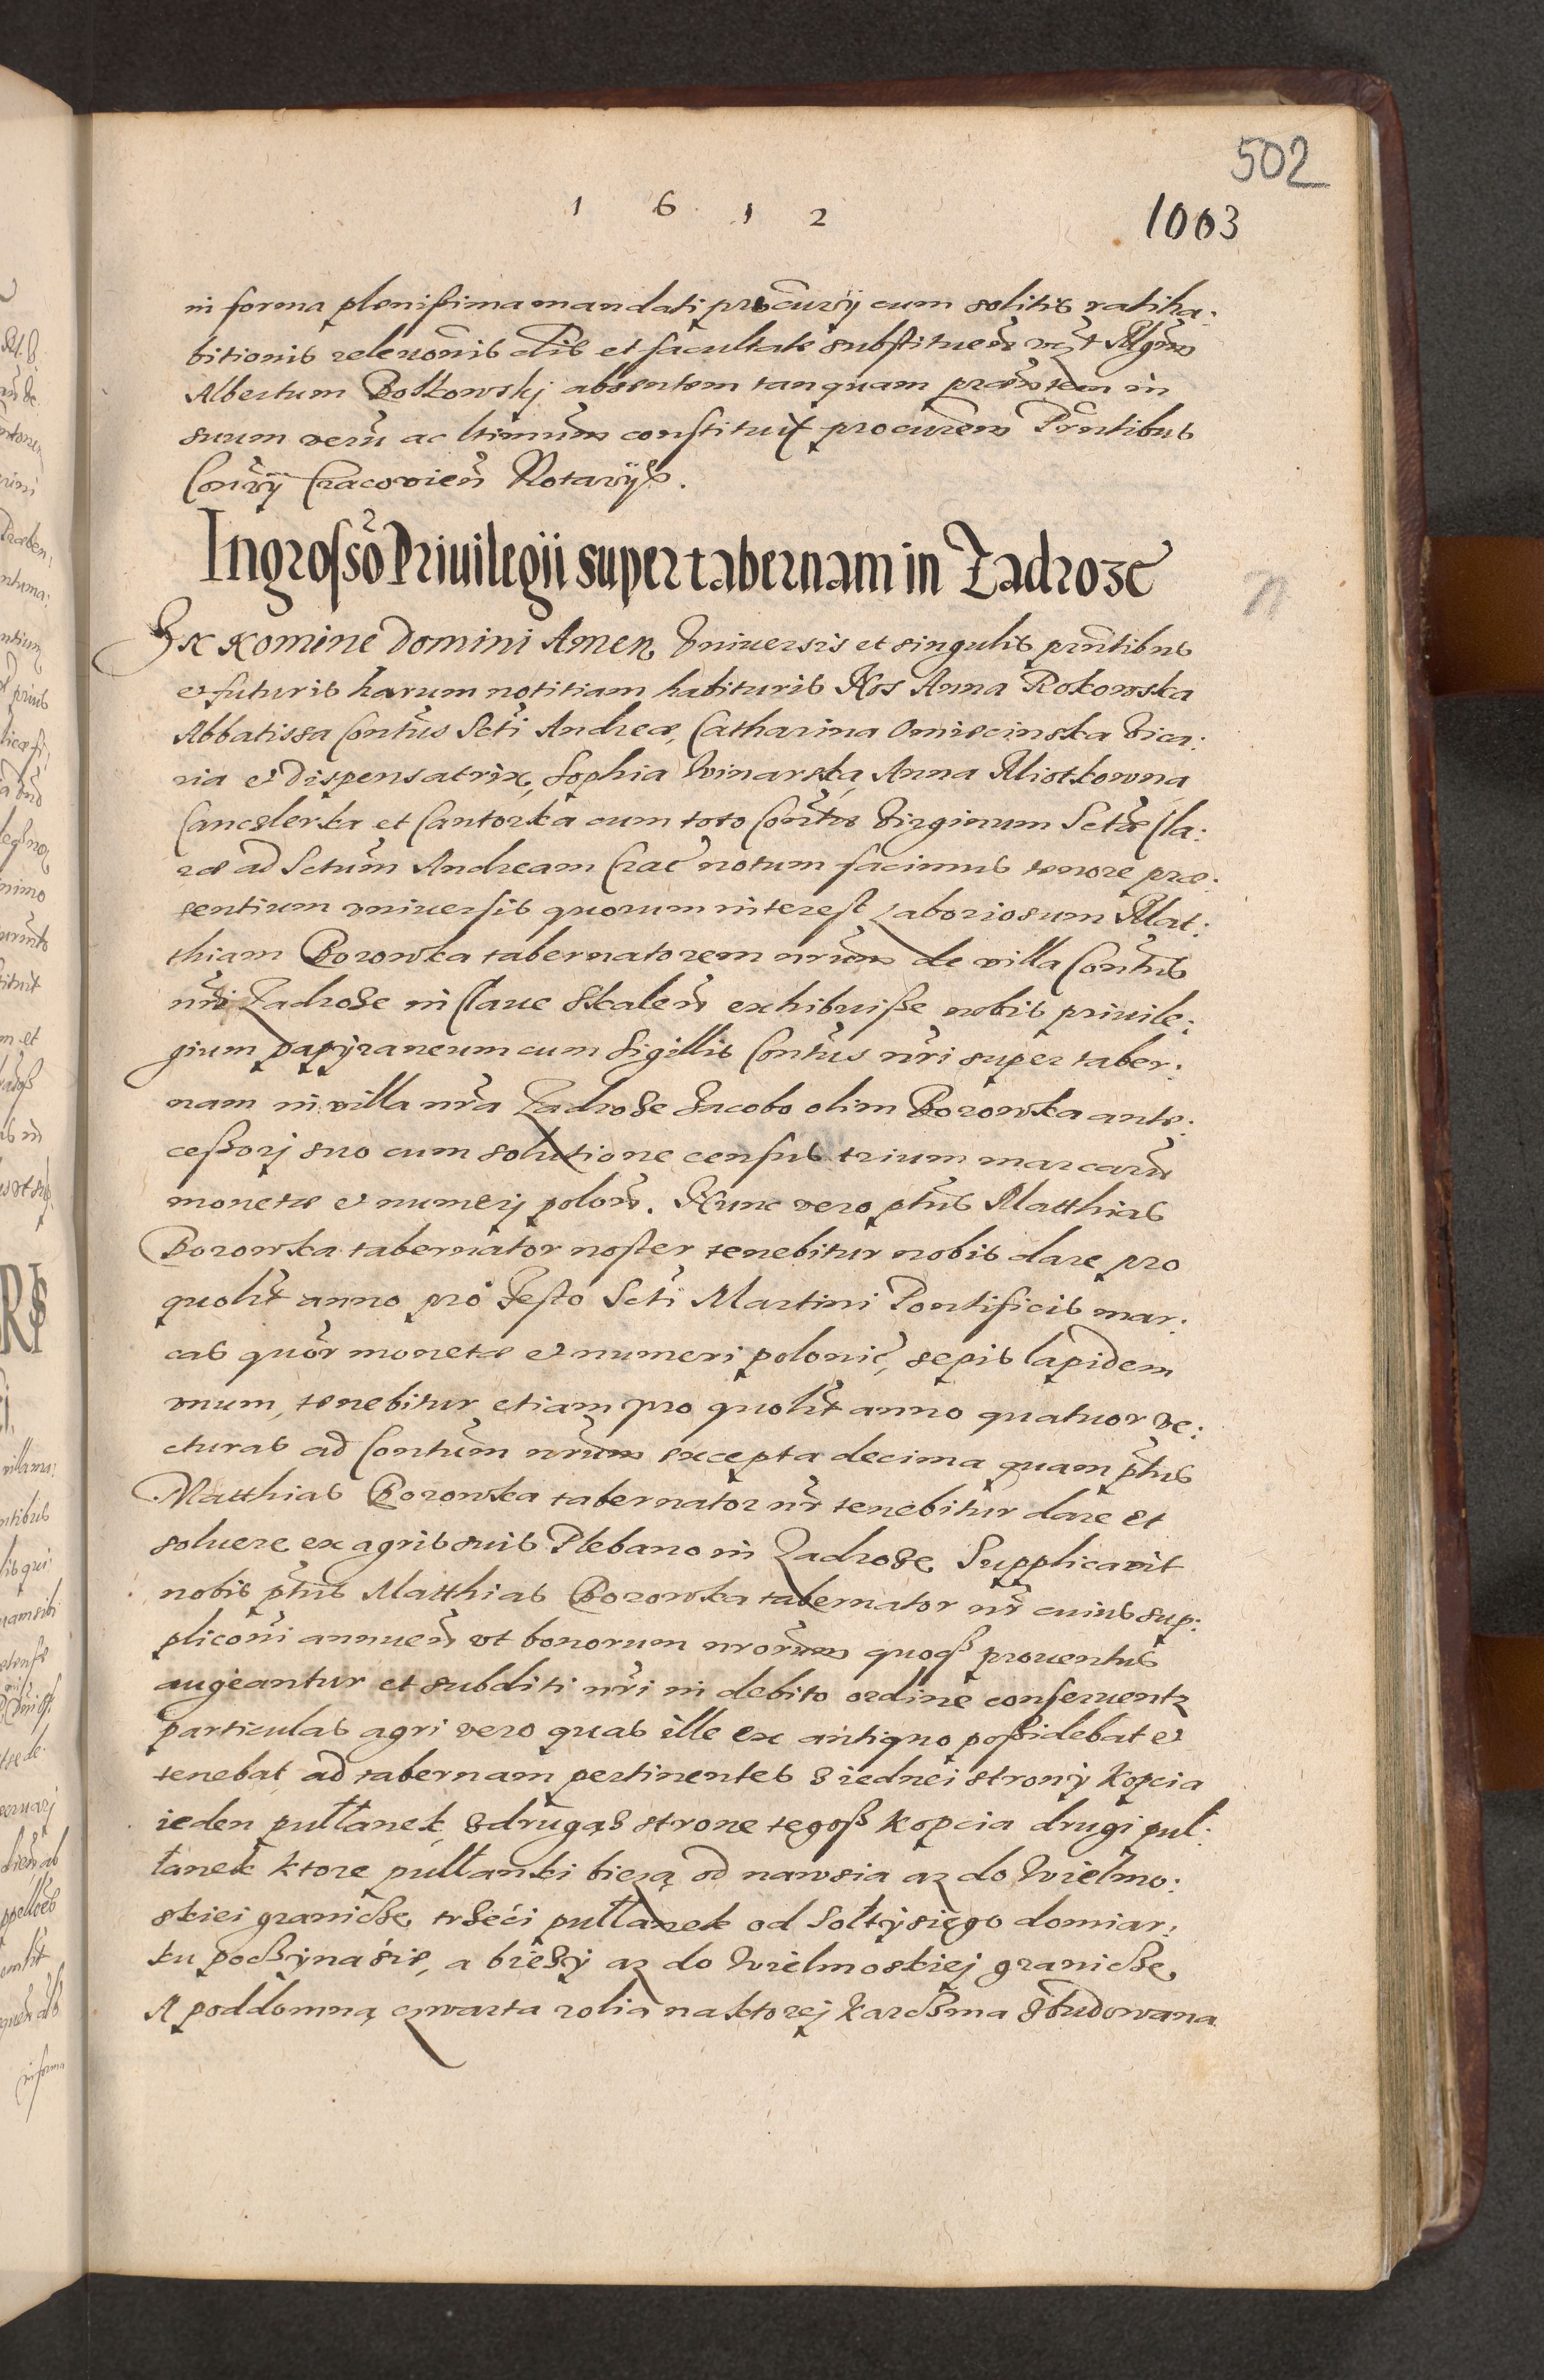 502
1 6 1 2
1003
in forma plenißima mandati procurÿ cum solitis ratiha:
bitionis releuonis clis et facultate substituen vzt Mgrm
Albertum Boskowskj absentem tanquam præsentem in
suum verũ ac ltimum constituit procurem Prntibus
Consrÿ Cracovien Notarÿs.
Ingrosso Priuilegii super tabernam in Zadroze
In Nomine Domini Amen Vniuersis et singulis prntibus
et futuris harum notitiam habituris Nos Anna Rokowska
Abbatissa Conũtus Scti Andreæ, Catharina Omiecinska Vica:
ria et Dispensatrix, Sophia Winarska, Anna Miotkowna
Canczlerka et Cantorka cum toto Conũtu Virginum Sctæ Cla:
ræ ad Sctum Andream Crac notum facimus tenore præ:
sentium vniuersis quorum interest Laboriosum Mat:
thiam Borowka tabernatorem nrum de villa Contus
nri Zadroze in Claue Skalen exhibuiße nobis priuile:
gium papÿraneum cum Sigillis Contus nri super taber:
nam in villa nra Zadroze Jacobo olim Borowka ante:
ceßorj suo cum solutione census trium marcarũ
monetæ et numerj polon. Nunc vero ptus Matthias
Borowka tabernator noster tenebitur nobis dare pro
quolt anno pro Festo Scti Martini Pontificis mar:
cas quor monetæ et numeri polonic, sepis lapidem
vnum, tenebitur etiam pro quolt anno quatuor ve:
cturas ad Contum nrum excepta decima quam ptus
Matthias Borowka tabernator nr tenebitur dare et
soluere ex agris suis Plebano in Zadroze Supplicavit
nobis ptus Matthias Borowka tabernator nr cuius sup:
pliconi annuen vt bonorum nrorum quoqs prouentus
augeantur et subditi nri in debito ordine conseruentr
particulas agri vero quas ille ex antiquo poßidebat et
tenebat ad tabernam pertinentes z iednei stronÿ kopcia
ieden pułłanek, z drugąs strone tegoß kopcia drugi puł:
łanek ktore pułłanki bieżą od nawsia az do Wielmo:
skiei granicze, trzeći pułłanek od Sołtÿsięgo domiar:
ku poczÿna śie, a bieżÿ az do Wielmoskiej granicze,
A poddomną czwarta rolia na ktorej karczma zbudowana